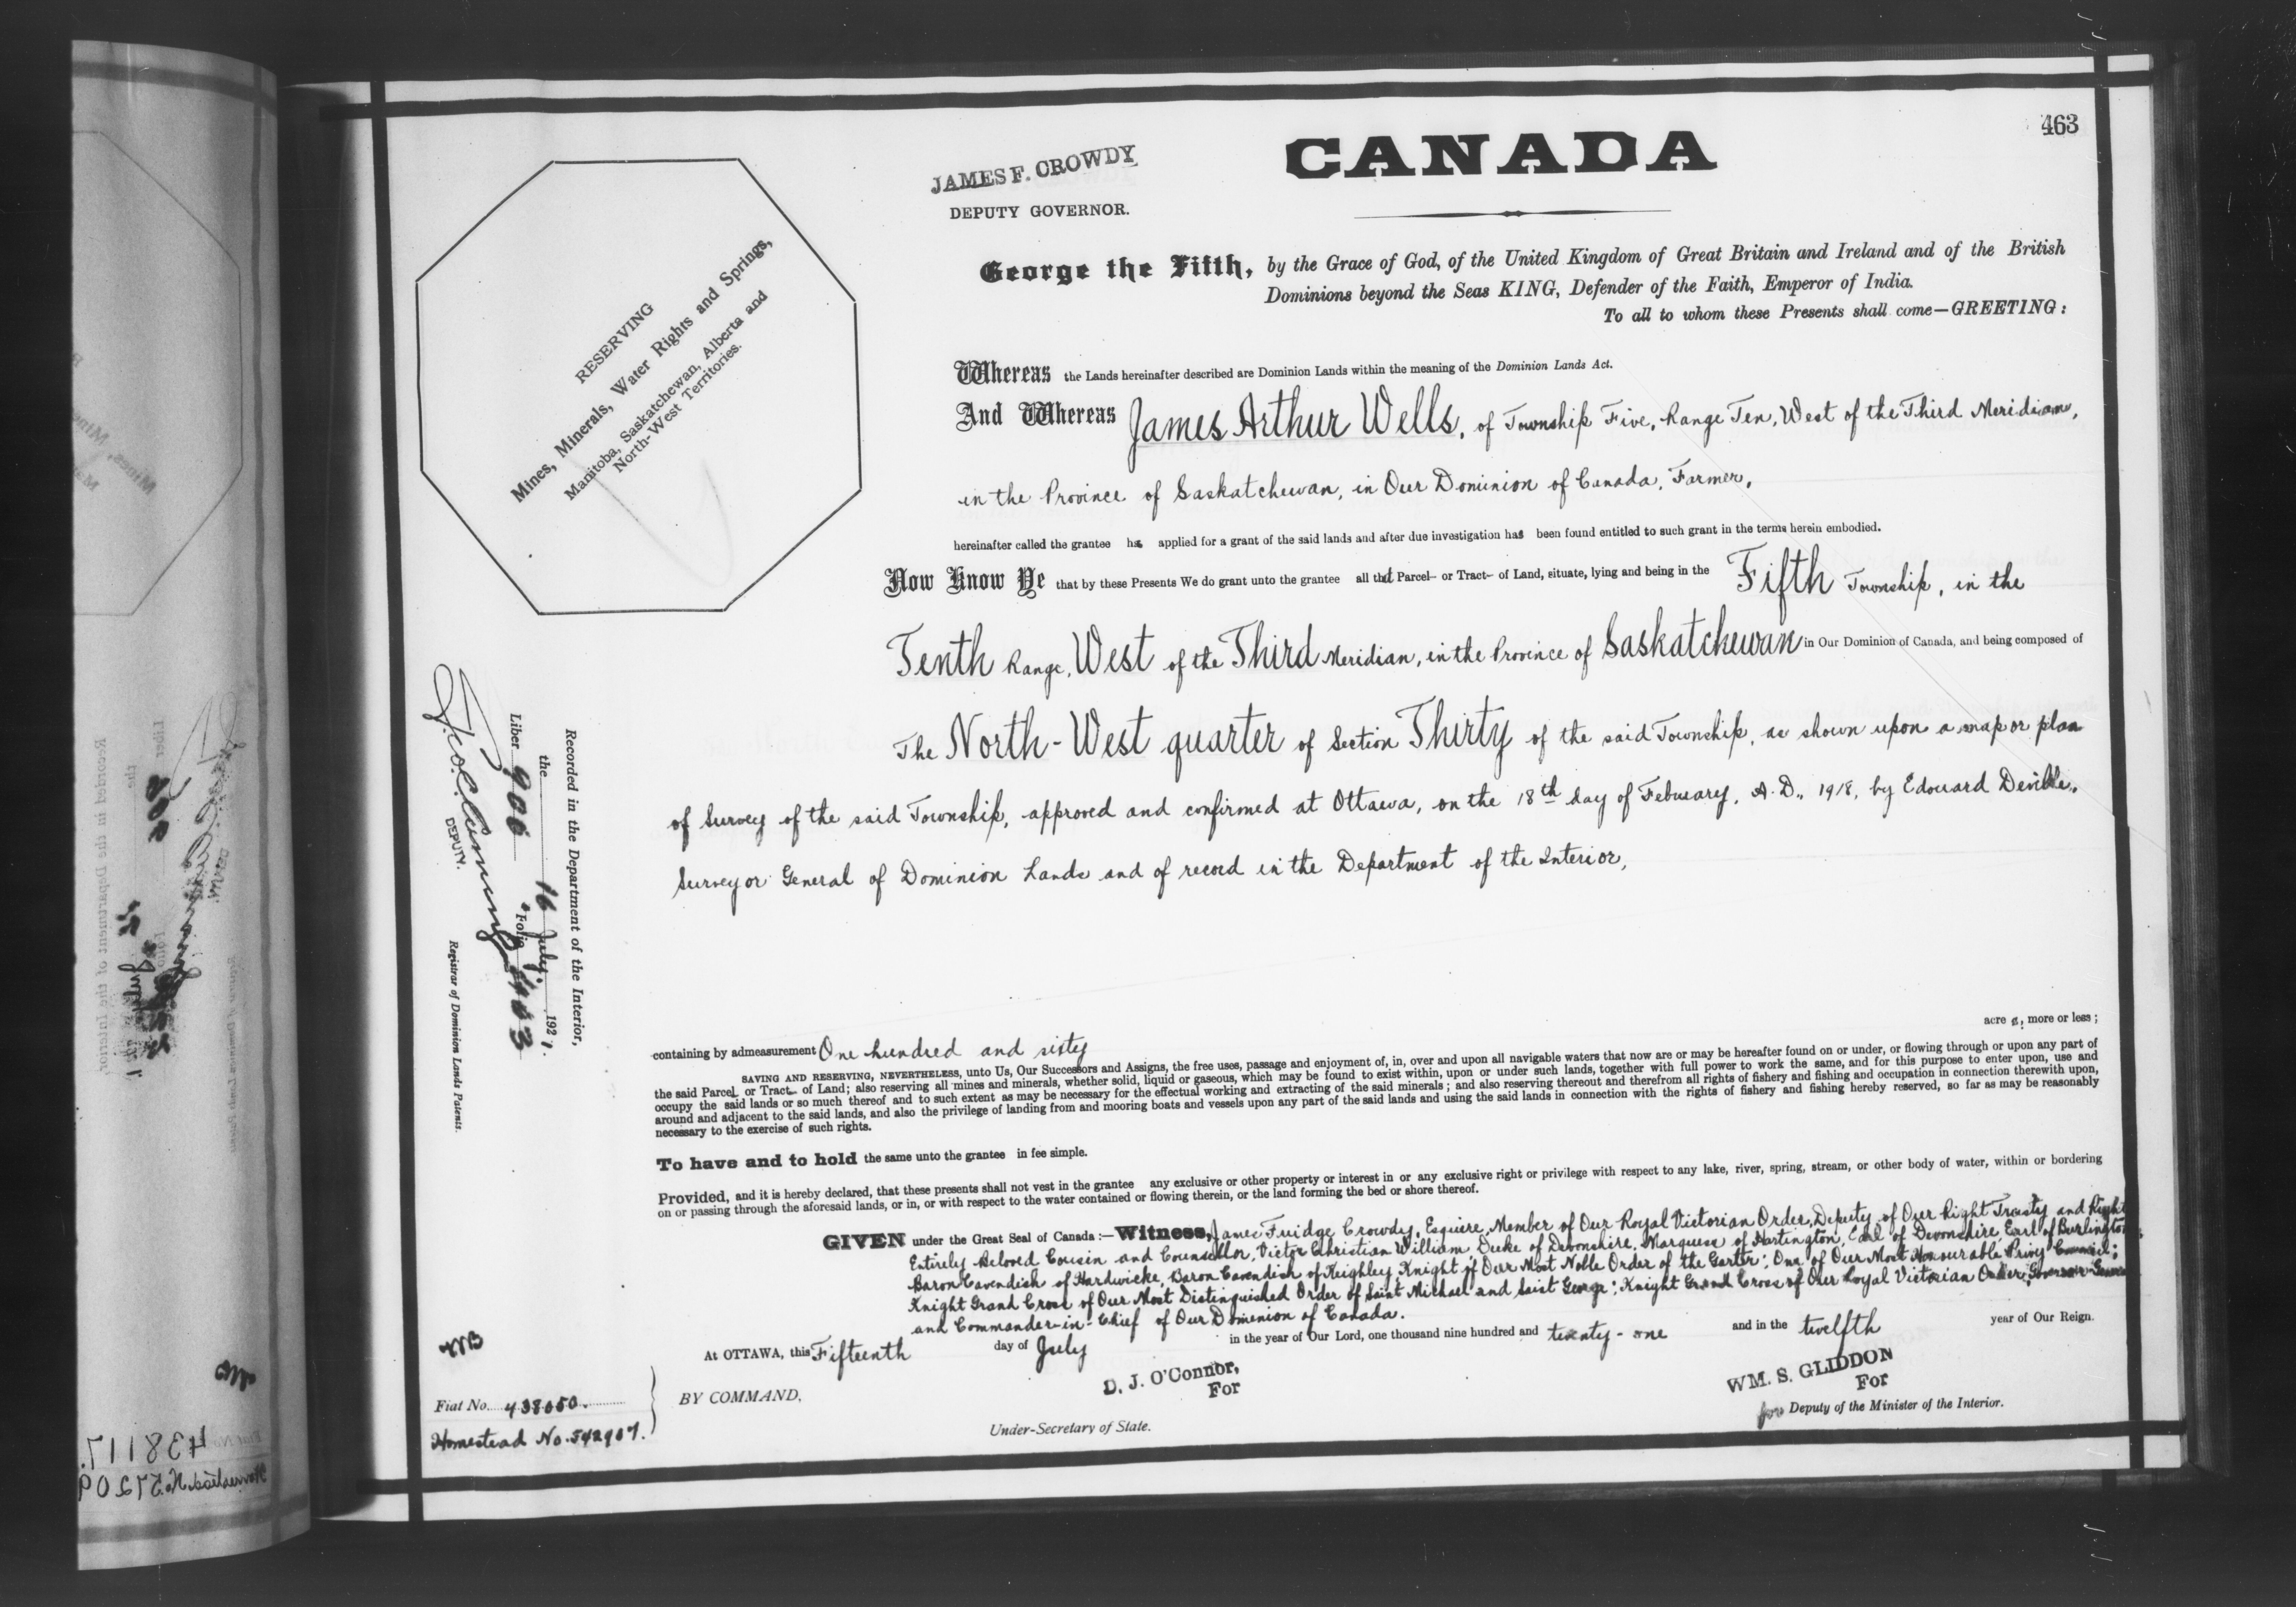 463
CANADA
JAMES F. CROWDY
DEPUTY GOVERNOR.
George the Fifth, by the Grace of God, of the United Kingdom of Great Britain and Ireland and of the British
Dominions beyond the Seas KING, Defender of the Faith, Emperor of India.
To all to whom these Presents shall come—GREETING:
RESERVING
Mines, Minerals, Water Rights and Springs,
Manitoba, Saskatchewan, Alberta and
North-West Territories.
Whereas the Lands hereinafter described are Dominion Lands within the meaning of the Dominion Lands Act.
And Whereas James Arthur Wells, of Township Five, Range Ten, West of the Third Meridian,
in the Province of Saskatchewan, in Our Dominion of Canada, Farmer,
hereinafter called the grantee has applied for a grant of the said lands and after due investigation has been found entitled to such grant in the terms herein embodied.
Now Know Ye that by these Presents We do grant unto the grantee all that Parcel or Tract of Land, situate, lying and being in the Fifth Township, in the
Tenth Range, West of the Third Meridian, in the Province of Saskatchewan in Our Dominion of Canada, and being composed of
The North-West quarter of Section Thirty of the said Township, as shown upon a map or plan
of Survey of the said Township, approved and confirmed at Ottawa, on the 18th day of February, A.D., 1918, by Edouard Deville,
Surveyor General of Dominion Lands and of record in the Department of the Interior,
containing by admeasurement One hundred and sixty acres, more or less;
SAVING AND RESERVING, NEVERTHELESS, unto Us, Our Successors and Assigns, the free uses, passage and enjoyment of, in, over and upon all navigable waters that now are or may be hereafter found on or under, or flowing through or upon any part of
the said Parcel or Tract of Land; also reserving all mines and minerals, whether solid, liquid or gaseous, which may be found to exist within, upon or under such lands, together with full power to work the same, and for this purpose to enter upon, use and
occupy the said lands or so much thereof and to such extent as may be necessary for the effectual working and extracting of the said minerals; and also reserving thereout and therefrom all rights of fishery and fishing and occupation in connection therewith upon,
around and adjacent to the said lands, and also the privilege of landing from and mooring boats and vessels upon any part of the said lands and using the said lands in connection with the rights of fishery and fishing hereby reserved, so far as may be reasonably
necessary to the exercise of such rights.
To have and to hold the same unto the grantee in fee simple.
Provided, and it is hereby declared, that these presents shall not vest in the grantee any exclusive or other property or interest in or any exclusive right or privilege with respect to any lake, river, spring, stream, or other body of water, within or bordering
on or passing through the aforesaid lands, or in, or with respect to the water contained or flowing therein, or the land forming the bed or shore thereof.
GIVEN under the Great Seal of Canada:—Witness, James Fuidge Crowdy, Esquire, Member of Our Royal Victorian Order, Deputy of Our Right Trusty and Right
Entirely Beloved Cousin and Counsellor, Victor Christian William, Duke of Devonshire, Marquess of Hartington, Earl of Devonshire, Earl of Burlington,
Baron Cavendish of Hardwicke, Baron Cavendish of Keighley, Knight of Our Most Noble Order of the Garter; One of Our Most Honourable Privy Council;
Knight Grand Cross of Our Most Distinguished Order of Saint Michael and Saint George; Knight Grand Cross of Our Royal Victorian Order; Governor General
and Commander-in-Chief of Our Dominion of Canada.
At OTTAWA, this Fifteenth day of July in the year of Our Lord, one thousand nine hundred and twenty-one and in the twelfth year of Our Reign.
BY COMMAND,
D. J. O'Connor,
For
Under-Secretary of State.
WM. S. GLIDDON
For
for Deputy of the Minister of the Interior.
Fiat No. 438050.
Homestead No. 542907.
Recorded in the Department of the Interior,
the 16 July, 1921.
Liber 906 Folio 463
DEPUTY.
Registrar of Dominion Lands Patents.
438117.